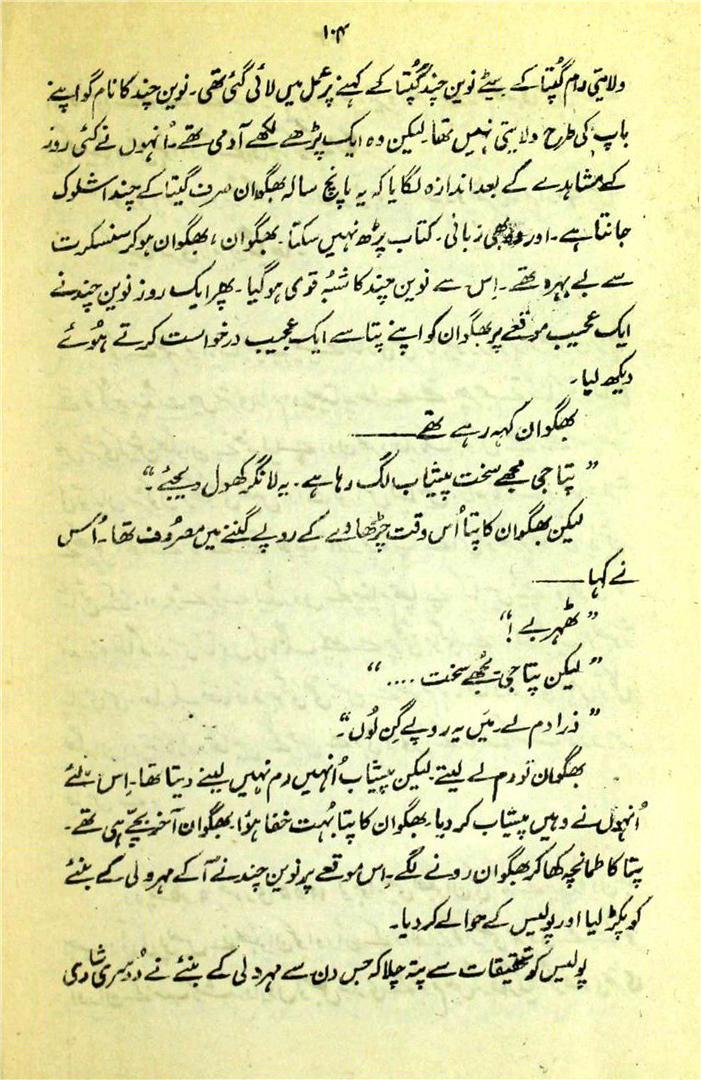 ۱۰۴
ولایتی رام گپتا کے بیٹے نوین چند گپتا کے کہنے پر عمل میں لائی گئی تھی۔ نوین چند کا نام گو اپنے
باپ کی طرح ولایتی نہیں تھا۔ لیکن وہ ایک پڑھے لکھے آدمی تھے۔ اُنہوں نے کئی روز
کے مشاہدے کے بعد اندازہ لگایا کہ یہ پانچ سالہ بھگوان صرف گیتا کے چند اشلوک
جانتا ہے۔ اور وہ بھی زبانی۔ کتاب پڑھ نہیں سکتا۔ بھگوان، بھگوان ہو کر سنسکرت
سے بے بہرہ تھے۔ اِس سے نوین چند کا شبُہ قوی ہو گیا۔ پھر ایک روز نوین چند نے
ایک عجیب موقعے پر بھگوان کو اپنے پتا سے ایک عجیب درخواست کرتے ہوُئے
دیکھ لیا۔
بھگوان کہہ رہے تھے ———
”پتا جی مجھے سخت پیشاب لگ رہا ہے۔ یہ لانگر کھول دیجئے۔“
لیکن بھگوان کا پتا اُس وقت چڑھاوے کے روپے گننے میں مصرُوف تھا۔ اُس
نے کہا ———
”ٹھہر بے!“
”لیکن پتا جی مُجھے سخت ....“
”ذرا دم لے۔ میَں یہ روپے گِن لوُں۔“
بھگوان تو دم لے لیتے۔ لیکن پیشاب اُنہیں دم نہیں لینے دیتا تھا۔ اِس لئے
اُنہوں نے وہیں پیشاب کر دیا۔ بھگوان کا پتا بہُت خفا ہوُا۔ بھگوان آخر بچّے ہی تھے۔
پتا کا طمانچہ کھا کر بھگوان رونے لگے۔ اِس موقعے پر نوین چند نے آ کے مہرولی کے بنئے
کو پکڑ لیا اور پولیس کے حوالے کر دیا۔
پولیس کو تحقیقات سے پتہ چلا کہ جس دن سے مہرولی کے بنئے نے دُوسری شادی